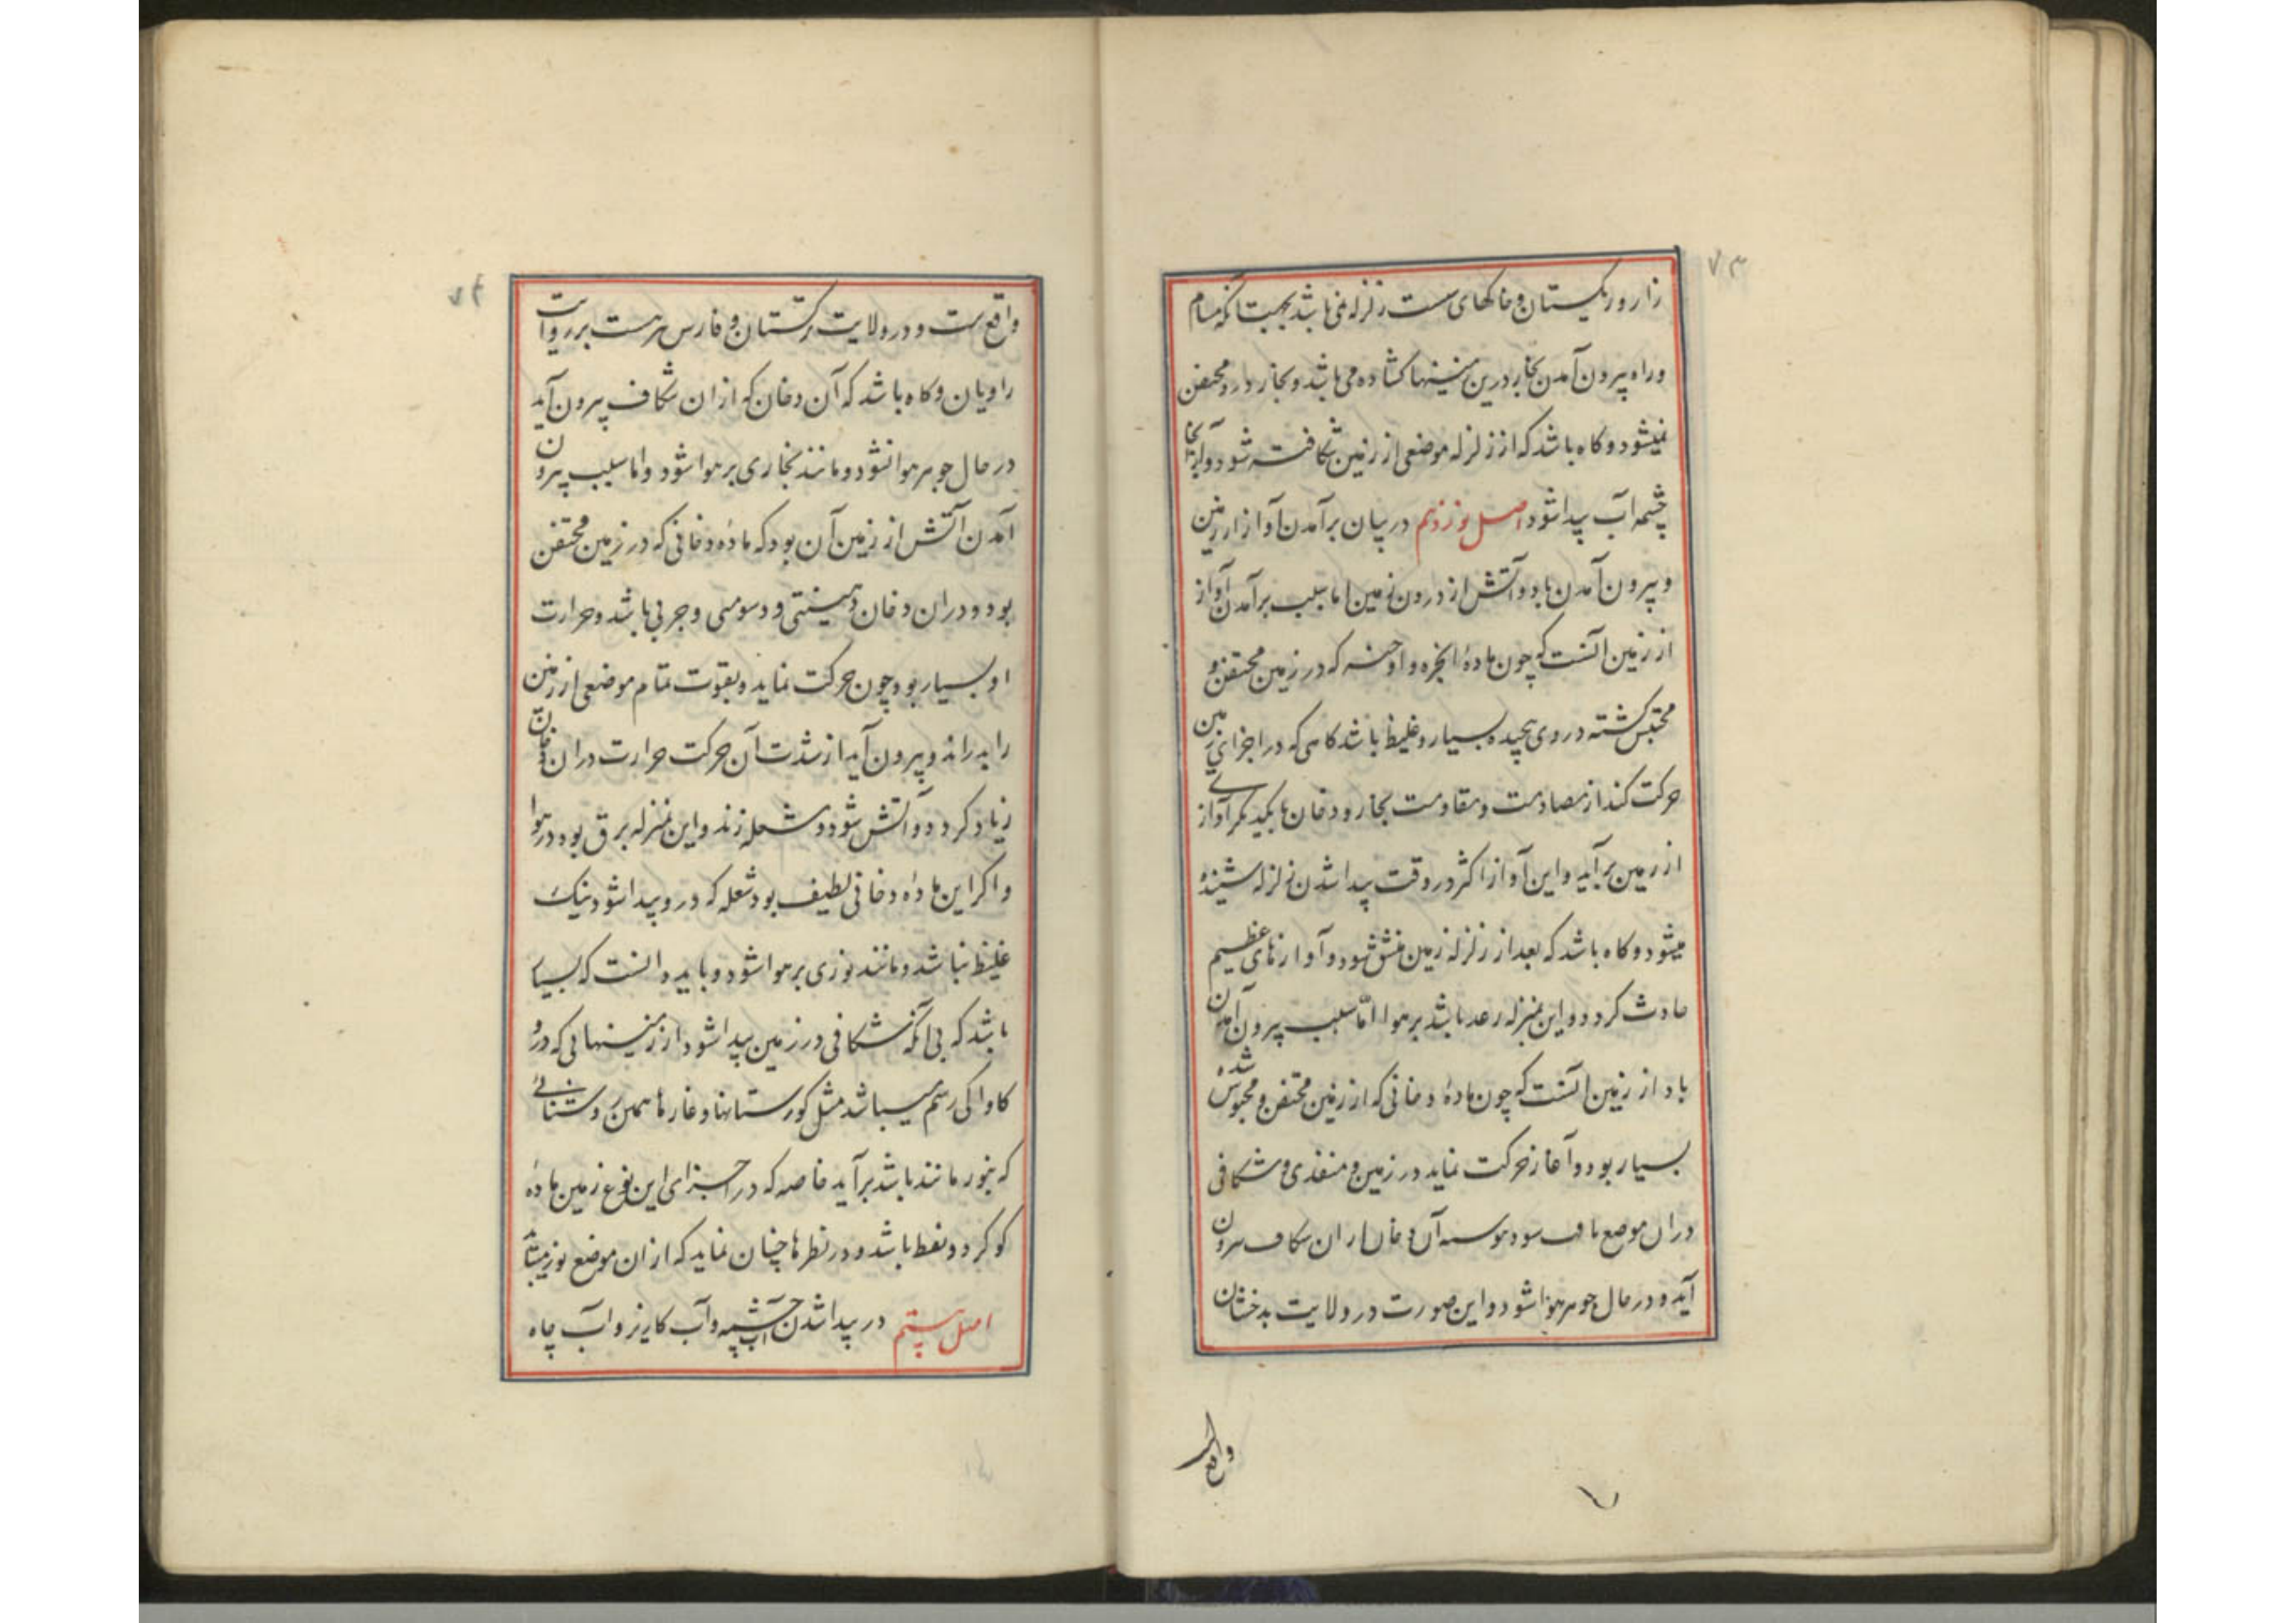 ۷۳
زار و ریکستان و خاکهای سست زلزله نمی باشد بجهت آنکه مسام
و راه بیرون آمدن بخار درین زمینها کشاده می باشد و بخار درو محتقن
نمیشود و کاه باشد که از زلزله موضعی از زمین شکافته شود و از آنجا
چشمه آب پیدا شود اصل نوزدهم در بیان برآمدن آواز از زمین
و بیرون آمدن باد و آتش از درون زمین اما سبب برآمدن آواز
از زمین آنست که چون مادۀ ابخره و ادخنه که در زمین محتقن و
محتبس کشته در وی پیچیده بسیار و غلیظ باشد کاهی که در اجزای زمین
حرکت کند از مصادمت و مقاومت بخار و دخان با یکدیکر آوازی
از زمین برآید و این آواز اکثر در وقت پیدا شدن زلزله شنیده
میشود و کاه باشد که بعد از زلزله زمین منشق شود و آوازهای عظیم
حادث کردد و این بمنزله رعد باشد بر هوا امّا سبب بیرون آمدن
باد از زمین آنست که چون مادۀ دخانی که از زمین محتقن و محبوس شده
بسیار بود و آغاز حرکت نماید در زمین و منفذی و شکافی
دران موضع یافت شود هرآینه آن دخان ازان شکاف بیرون
آید و در حال جوهر هوا شود و این صورت در ولایت بدخشان
واقع است
۷
۷۴
واقع است و در ولایت ترکستان و فارس هست بر روایت
راویان و کاه باشد که آن دخان که ازان شکاف بیرون آید
در حال جوهر هوا نشود و مانند بخاری بر هوا شود و اما سبب بیرون
آمدن آتش از زمین آن بود که مادۀ دخانی که در زمین محتقن
بود و دران دخان دهینتی و دسومتی و چربی باشد و حرارت
او بسیار بود چون حرکت نماید و بقوت تمام موضعی از زمین
را بدراند و بیرون آید از شدت آن حرکت حرارت دران دخان
زیاد کردد و آتش شود و شعله زند و این بمنزله برق بود در هوا
و اکر این ماده دخانی لطیف بود شعله که درو پیدا شود نیک
غلیظ نباشد و مانند نوری بر هوا شود و باید دانست که بسیار
باشد که بی آنکه شکافی در زمین پیدا شود از زمینهائی که درو
کاواکی رستم میباشد مثل کورستانها و غارها همین روشنائی
که بنور مانند باشد برآید خاصه که در اجزای این نوع زمین ماده
کوکرد و نفط باشد و در نظرها چنان نماید که ازان موضع نور میتابد
اصل بیستم در پیدا شدن چشمه آب و آب کاریز و آب چاه